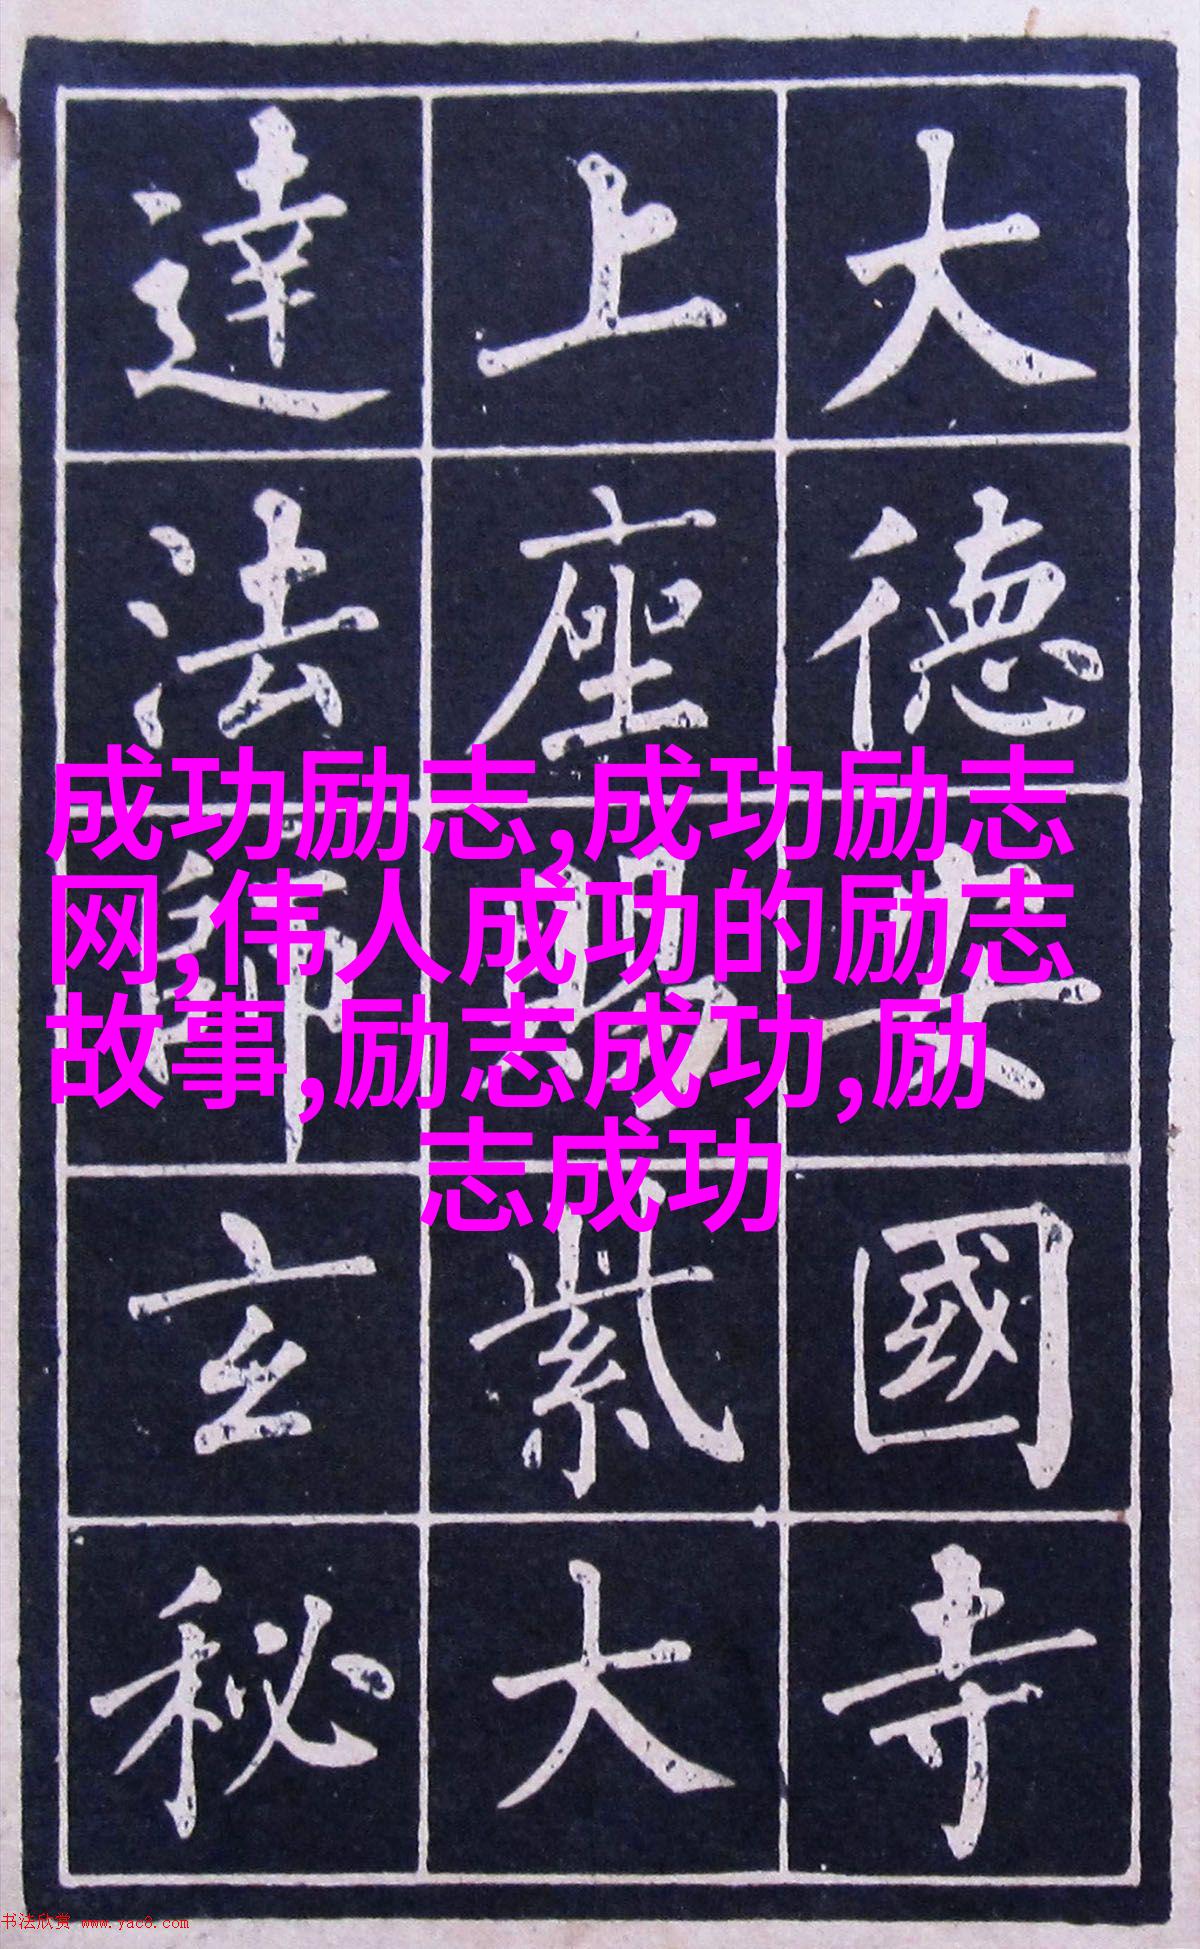 大德安國寺
上座賜紫大
達法師玄秘
成功励志,成功励志
网,伟人成功的励志
故事,励志成功,励
志成功
书法欣赏 www.yac8.com